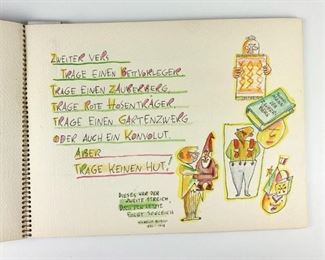 ZWEITER VERS
TRAGE EINEN BETTVORLEGER
TRAGE EINEN ZAUBERBERG,
TRAGE ROTE HOSENTRÄGER,
TRAGE EINEN GARTENZWERG,
ODER AUCH EIN KONVOLUT,
ABER
TRAGE KEINEN HUT!
DIESES WAR DER
ZWEITE STREICH,
DOCH DER LETZTE
FOLGT SOGLEICH
WILHELM BUSCH
DER
ZAUBER-
BERG